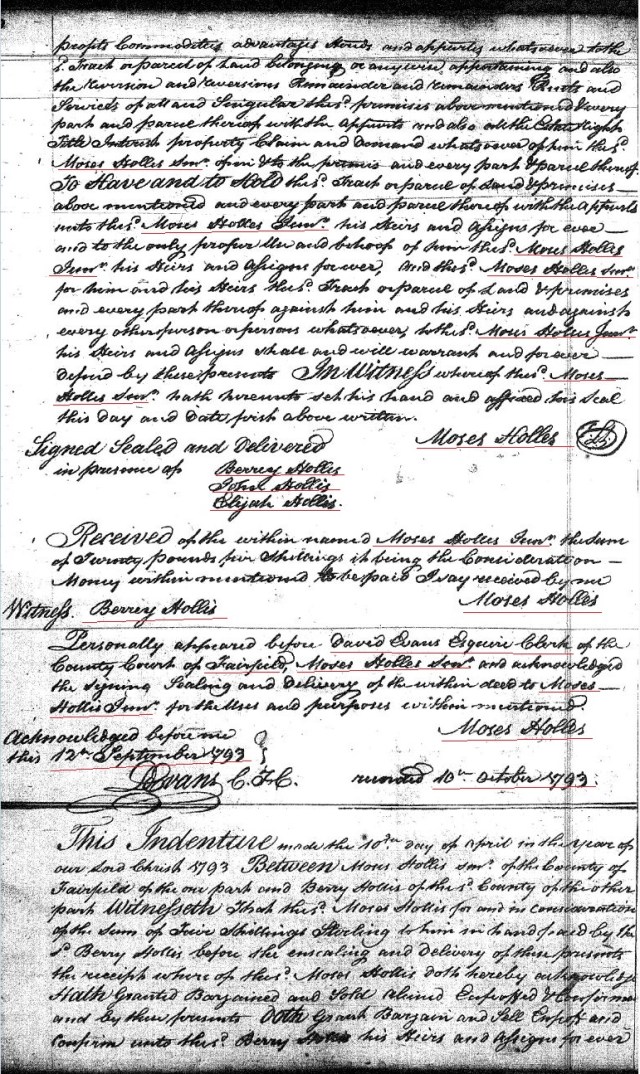 profits Commodities advantages Hereds and appurtes whatsoever to the
sd. Tract or parcel of Land belonging or anywise appertaining and also
the Reversion and reversions Remainder and remainders Rents and
Services of all and Singular the sd. premises above mentioned & every
part and parcel thereof with the Appurts and also all the Estate Right
Title Interest property Claim and demand whatsoever of him the sd.
Moses Hollis Senr. of in & to the premis and every part & parcel thereof
To Have and to Hold the sd. Tract or parcel of Land & premises
above mentioned and every part and parcel thereof with the appurts
unto the sd. Moses Hollis Junr. his Heirs and Assigns for ever
and to the only proper Use and behoof of him the sd. Moses Hollis
Junr. his Heirs and Assigns forever, And the sd. Moses Hollis Senr
for him and his Heirs the sd. Tract or parcel of Land & premises
and every part thereof against him and his Heirs and against
every other person or persons whatsoever, to the sd. Moses Hollis Junr.
his Heirs and Assigns shall and will warrant and forever
defend by these presents In Witness whereof the sd. Moses
Hollis Senr. hath hereunto set his hand and affixed his Seal
this day and Date first above written.
Moses Hollis LS
Signed Sealed and Delivered
in presence of Berrey Hollis
John Hollis
Elijah Hollis.
Received of the within named Moses Hollis Junr. the Sum
of Twenty pounds five Shillings it being the Consideration
Money within mentioned to be paid I say received by me
Moses Hollis
Witness. Berrey Hollis
Personally appeared before David Evans Esquire Clerk of the
County Court of Fairfield, Moses Hollis Senr. and acknowledged
the Signing Sealing and Delivery of the within deed to Moses
Hollis Junr. for the Uses and purposes within mentioned.
Moses Hollis
Acknowledged before me
this 12th. September 1793
D Evans C.F.C. received 10th October 1793.
This Indenture made the 10th day of April in the Year of
our Lord Christ 1793 Between Moses Hollis Senr. of the County of
Fairfield of the one part and Berry Hollis of the sd. County of the other
part Witnesseth That the sd. Moses Hollis for and in Consideration
of the Sum of Five Shillings Sterling to him in hand paid by the
sd. Berry Hollis before the ensealing and delivery of these presents
the receipt where of the sd. Moses Hollis doth hereby acknowledge
Hath Granted Bargained and Sold aliened Enfeoffed & Confirmed
and by these presents Doth Grant Bargain and Sell Enfeoff and
Confirm unto the sd. Berry Hollis his Heirs and Assigns for ever